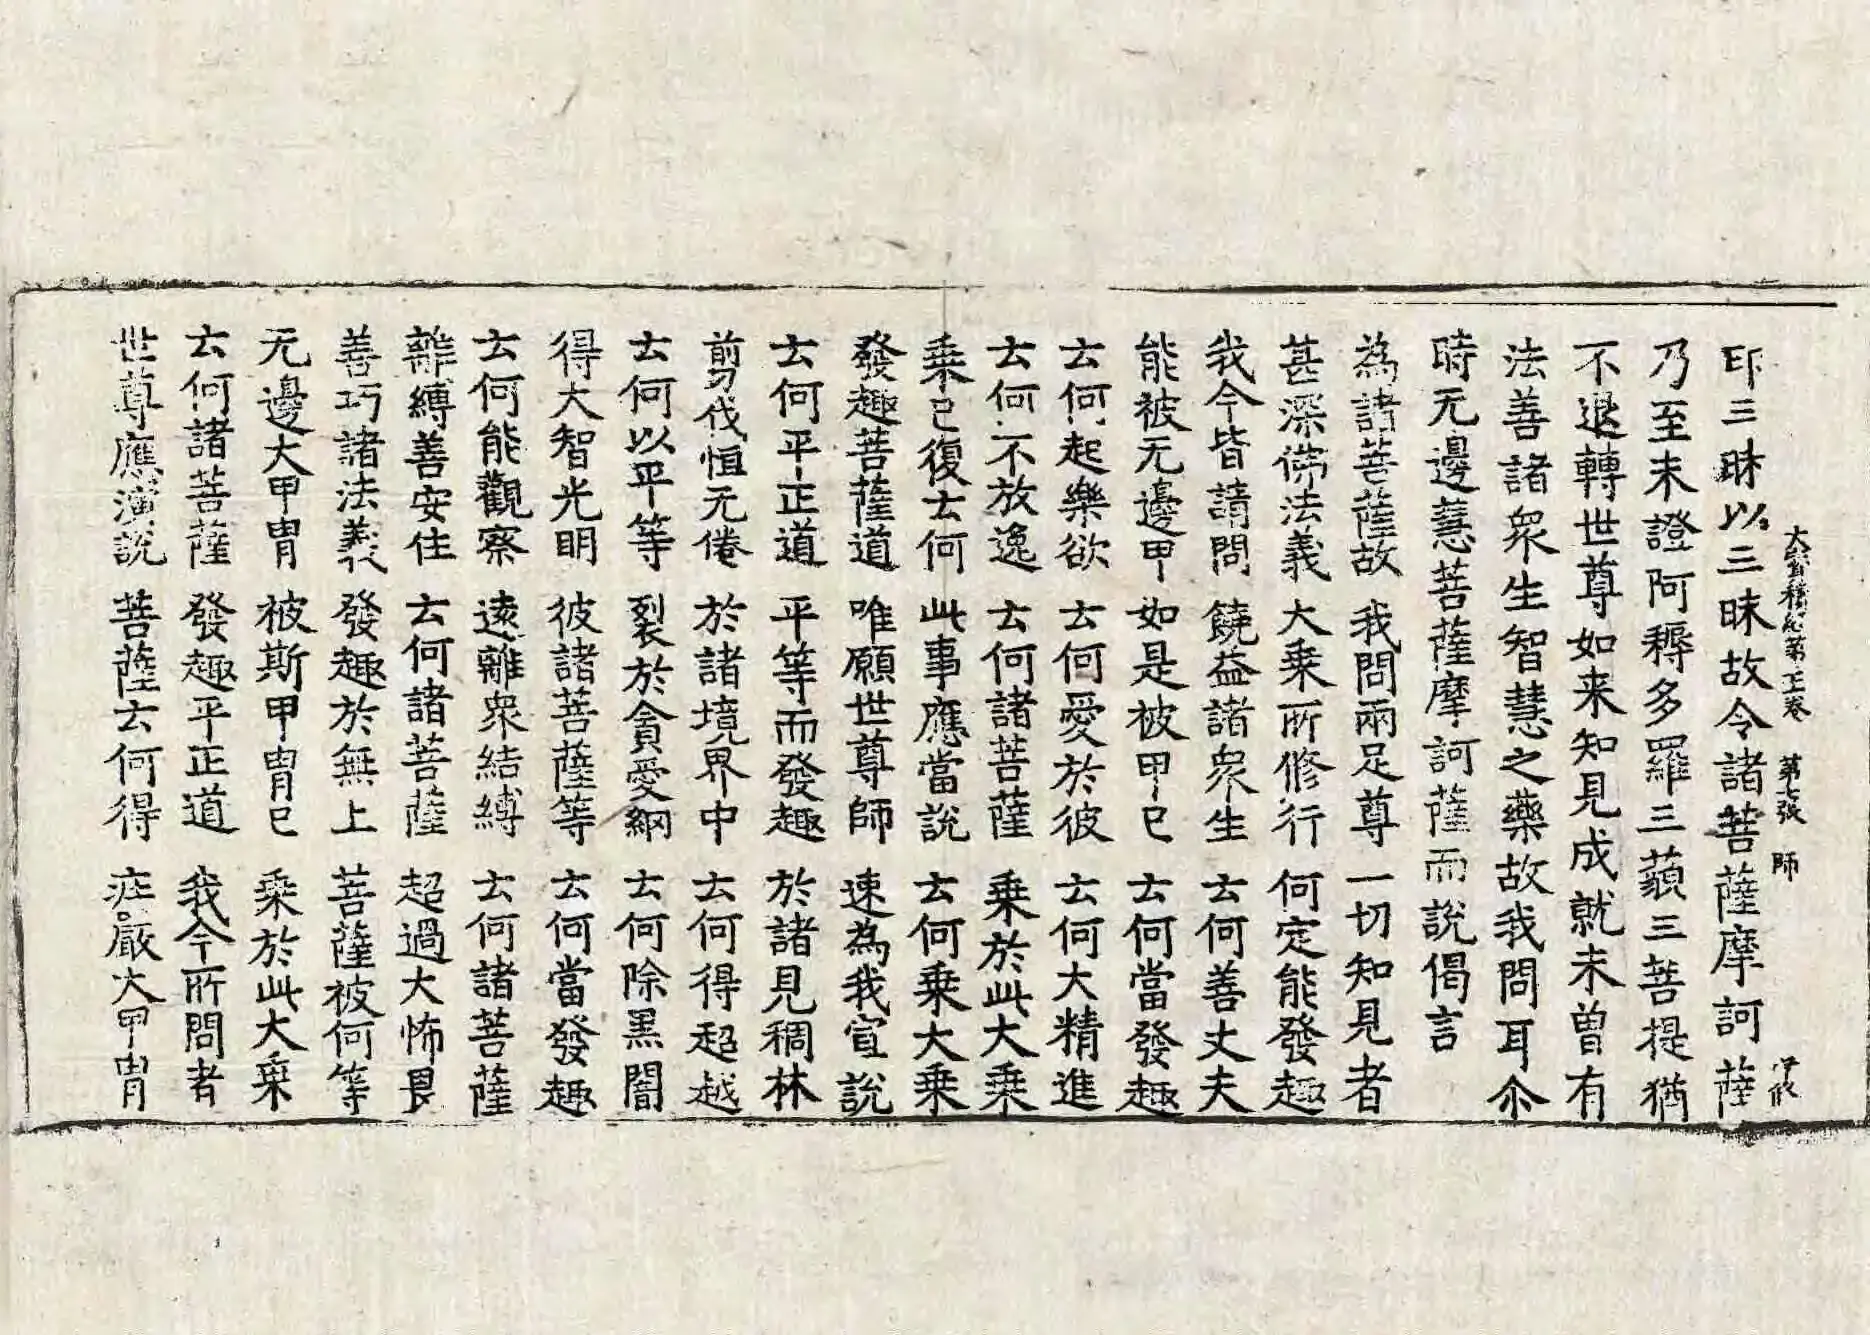 大寶積經第二十三卷 第七張 師
印三昧以三昧故令諸菩薩摩訶薩
乃至未證阿耨多羅三藐三菩提猶
不退轉世尊如来知見成就未曽有
法善諸衆生智慧之藥故我問耳尒
時无邊慧菩薩摩訶薩而說偈言
為諸菩薩故 我問兩足尊 一切知見者
甚深佛法義 大乗所修行 何定能發趣
我今皆請問 饒益諸衆生 云何善丈夫
能被无邊甲 如是被甲已 云何當發趣
云何起樂欲 云何愛於彼 云何大精進
云何不放逸 云何諸菩薩 乗於此大乗
乗已復云何 此事應當說 云何乗大乗
發趣菩薩道 唯願世尊師 速為我宣說
云何平正道 平等而發趣 於諸見稠林
剪伐恒无倦 於諸境界中 云何得超越
云何以平等 裂於貪愛網 云何除黒闇
得大智光明 彼諸菩薩等 云何當發趣
云何能觀察 遠離衆結縛 云何諸菩薩
離縛善安住 云何諸菩薩 超過大怖畏
善巧諸法義 發趣於無上 菩薩被何等
无邊大甲冑 被斯甲冑已 乗於此大乗
云何諸菩薩 發趣平正道 我今所問者
世尊應演說 菩薩云何得 庄嚴大甲冑